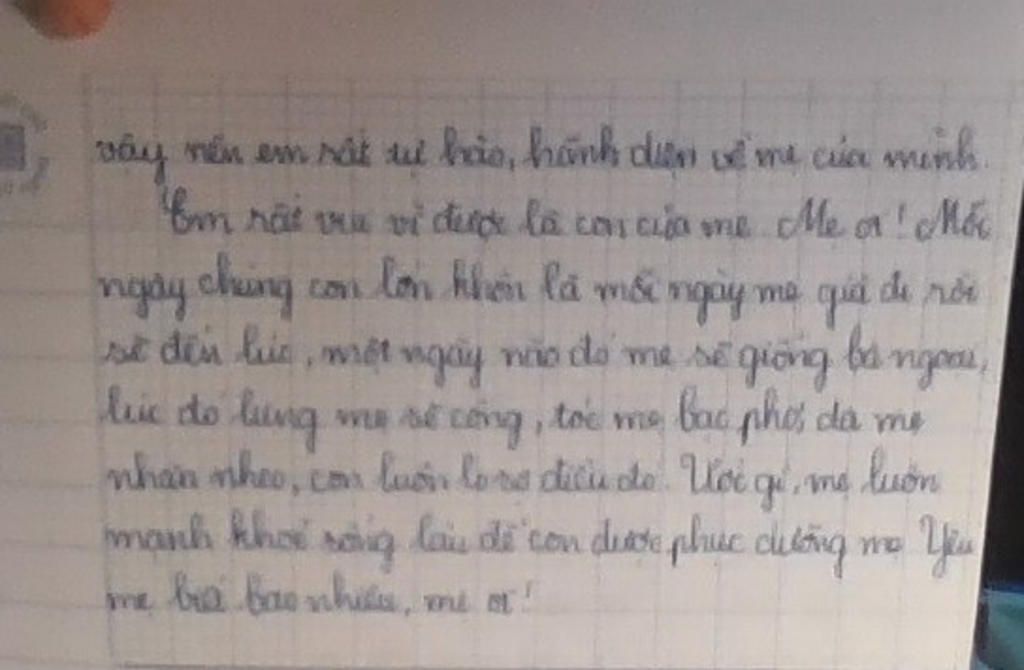 vậy nên em rất tự hào, hãnh diện về mẹ của mình.
Em rất vui vì được là con của mẹ. Mẹ ơi! Mỗi
ngày chúng con lớn khôn là mỗi ngày mẹ già đi rồi
sẽ đến lúc, một ngày nào đó mẹ sẽ giống bà ngoại,
lúc đó lưng mẹ sẽ còng, tóc mẹ bạc phơ, da mẹ
nhăn nheo, con luôn lo sợ điều đó. Ước gì, mẹ luôn
mạnh khoẻ sống lâu để con được phục dưỡng mẹ. Yêu
mẹ biết bao nhiêu, mẹ ơi!